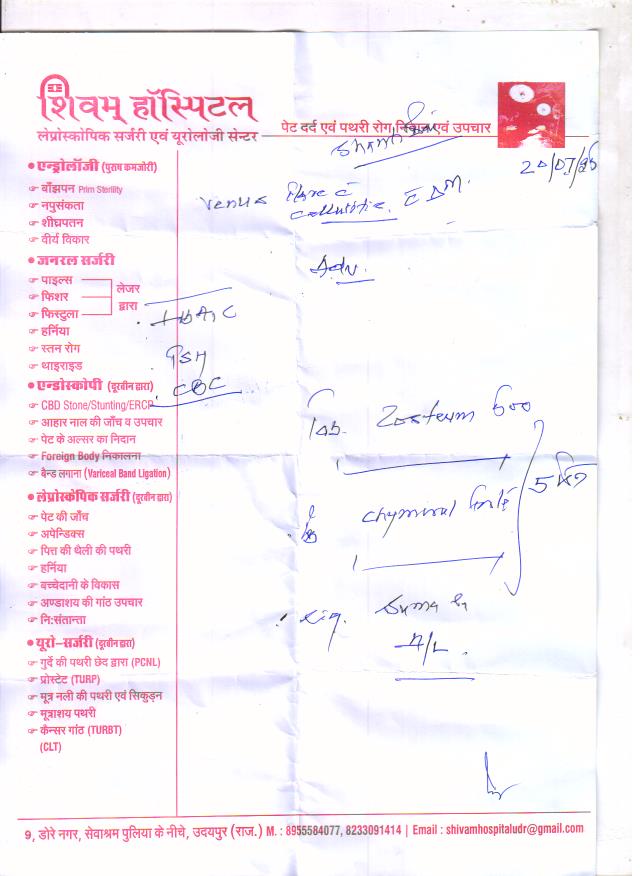 शिवम् हॉस्पिटल
लेप्रोस्कोपिक सर्जरी एवं यूरोलोजी सेन्टर
पेट दर्द एवं पथरी रोग निदान एवं उपचार
Venus
Adv.
• एन्ड्रोलॉजी (पुरुष कमजोरी)
बाँझपन Prim Sterility
नपुसंकता
शीघ्रपतन
वीर्य विकार
• जनरल सर्जरी
पाइल्स
फिशर
फिस्टुला
लेजर
द्वारा
हर्निया
स्तन रोग
थाइराइड
HbA1C
CBC
• एन्डोस्कोपी (दूरबीन द्वारा)
CBD Stone/Stunting/ERCP
आहार नाल की जाँच व उपचार
पेट के अल्सर का निदान
Foreign Body निकालना
बैन्ड लगाना (Variceal Band Ligation)
• लेप्रोस्कोपिक सर्जरी (दूरबीन द्वारा)
पेट की जाँच
अपेन्डिक्स
पित्त की थैली की पथरी
हर्निया
बच्चेदानी के विकास
अण्डाशय की गांठ उपचार
नि:संतान्ता
• यूरो-सर्जरी (दूरबीन द्वारा)
गुर्दे की पथरी छेद द्वारा (PCNL)
प्रोस्टेट (TURP)
मूत्र नली की पथरी एवं सिकुड़न
मूत्राशय पथरी
कैन्सर गांठ (TURBT)
(CLT)
Tab. 600
5 दिन
Chymoral forte
A/L
9, डोरे नगर, सेवाश्रम पुलिया के नीचे, उदयपुर (राज.) M. : 8955584077, 8233091414 | Email : shivamhospitaludr@gmail.com